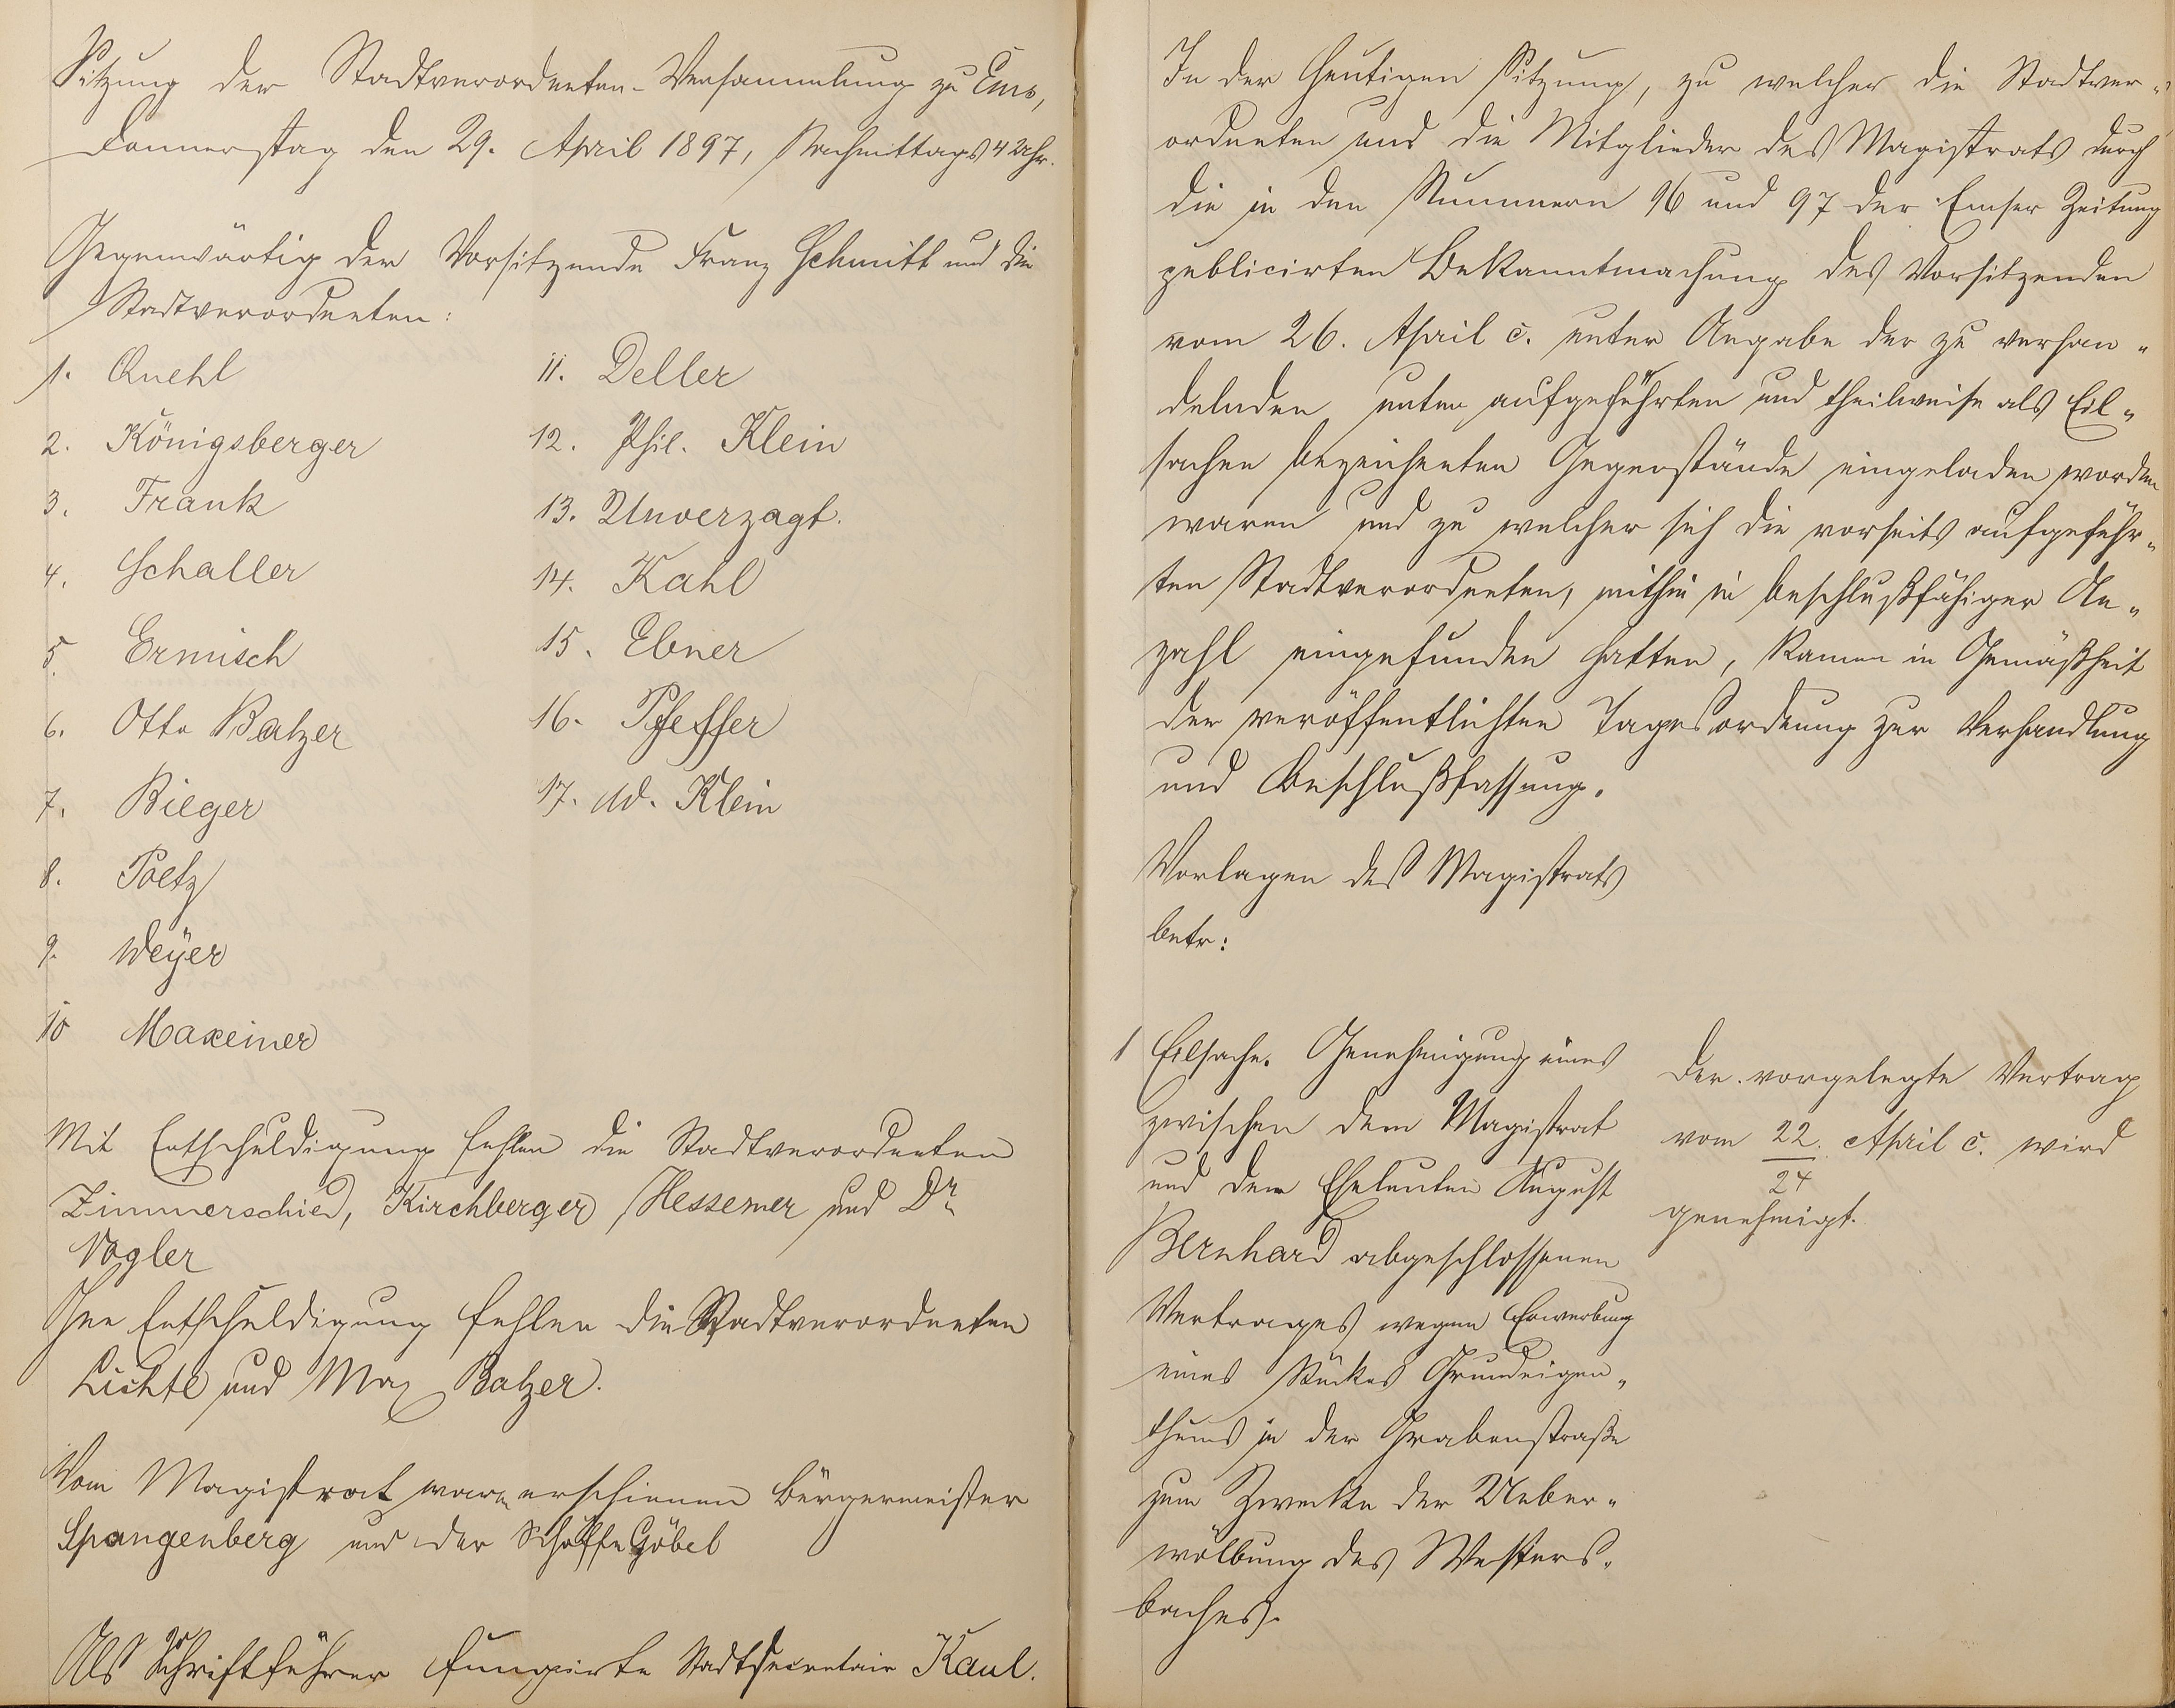 Sitzung der Stadtverordneten-Versammlung zu Ems,
Donnerstag den 29. April 1897, Nachmittags 4 Uhr.
Gegenwärtig der Vorsitzende Franz Schmitt und die
Stadtverordneten:
1. Quehl
2. Königsberger
3. Frank
4. Schaller
5. Ermisch
6. Otto Balzer
7. Bieger
8. Poetz
9. Weyer
10 Maxeiner
11. Deller
12. Phil. Klein
13. Unverzagt.
14. Kahl
15. Ebner
16. Pfeffer
17. Ad. Klein
Mit Entschuldigung fehlen die Stadtverordneten
Zimmerschied, Kirchberger Hessemer und Dr.
Vogler
Ohne Entschuldigung fehlen die Stadtverordneten
Lichte und Max Balzer.
Vom Magistrat waren erschienen Bürgermeister
Spangenberg und der Schöffe Göbel
Als Schriftführer fungirte Stadtsecretair Kaul.
In der heutigen Sitzung, zu welcher die Stadtver-
ordneten und die Mitglieder des Magistrats durch
die in den Nummern 96 und 97 der Emser Zeitung
publicirten Bekanntmachung des Vorsitzenden
vom 26. April c. unter Angabe der zu verhan-
delnden unten aufgeführten und theilweise als Eil-
sachen bezeichneten Gegenstände eingeladen worden
waren und zu welcher sich die vorseits aufgeführ-
ten Stadtverordneten, mithin in beschlußfähiger An-
zahl eingefunden hatten, kamen in Gemäßheit
der veröffentlichten Tagesordnung zur Verhandlung
und Beschlußfassung.
Vorlagen des Magistrats
betr:
1 Eilsache. Genehmigung eines
zwischen dem Magistrat
und den Eheleuten August
Bernhard abgeschlossenen
Vertrages wegen Erwerbung
eines Stückes Grundeigen-
thums in der Grabenstraße
zum Zwecke der Ueber-
wölbung des Westers-
baches.
Der vorgelegte Vertrag
vom 22./24 April c. wird
genehmigt.